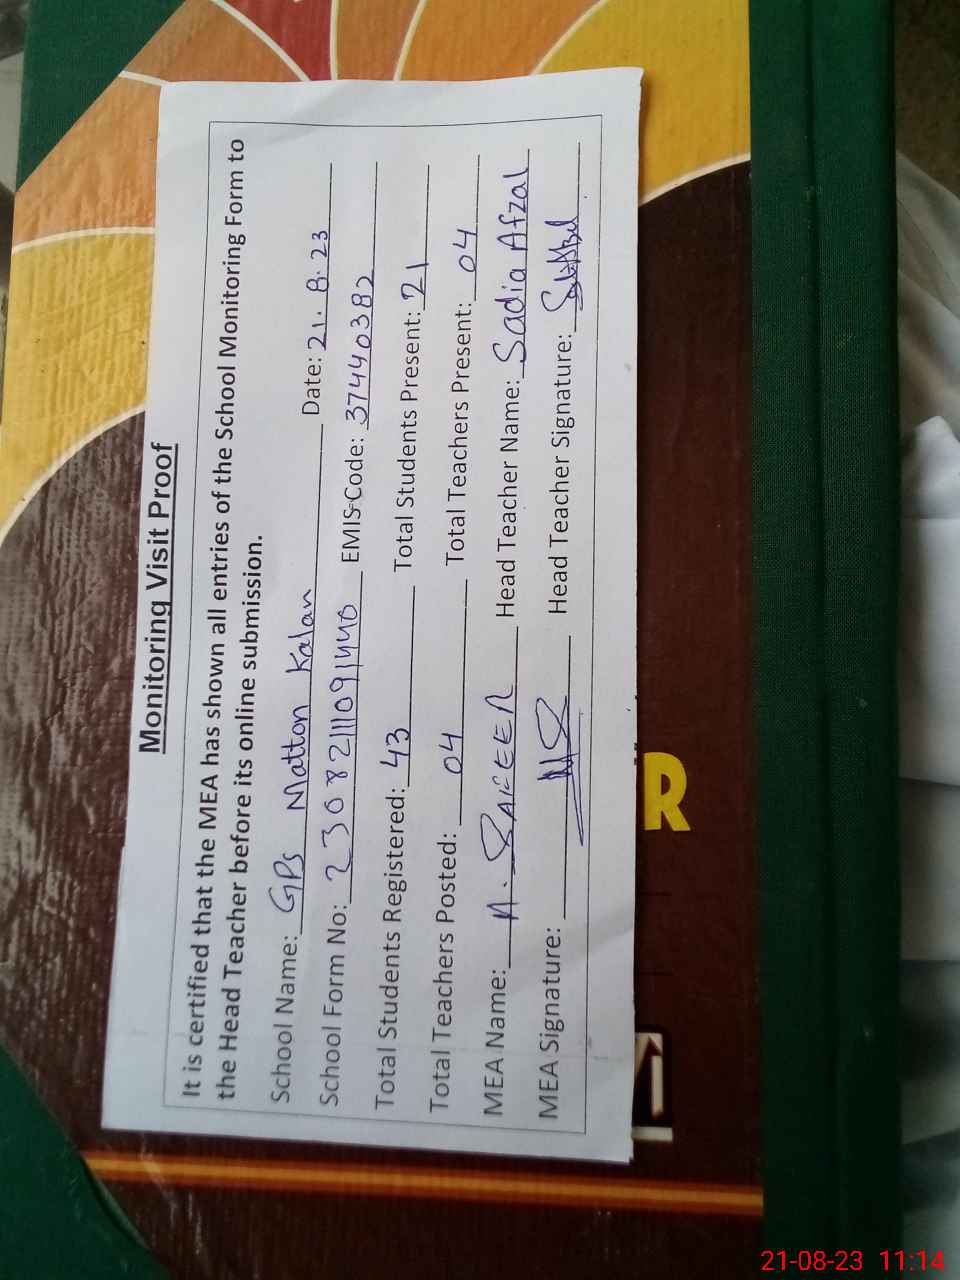 Monitoring Visit Proof
It is certified that the MEA has shown all entries of the School Monitoring Form to
the Head Teacher before its online submission.
School Name: GPS Matton Kalan Date: 21.8.23
School Form No: 230821110911440 EMIS-Code: 37440382
Total Students Registered: 43 Total Students Present: 21
Total Teachers Posted: 04 Total Teachers Present: 04
MEA Name: Head Teacher Name: Sadia Afzal
MEA Signature: Head Teacher Signature:
R
21-08-23 11:14